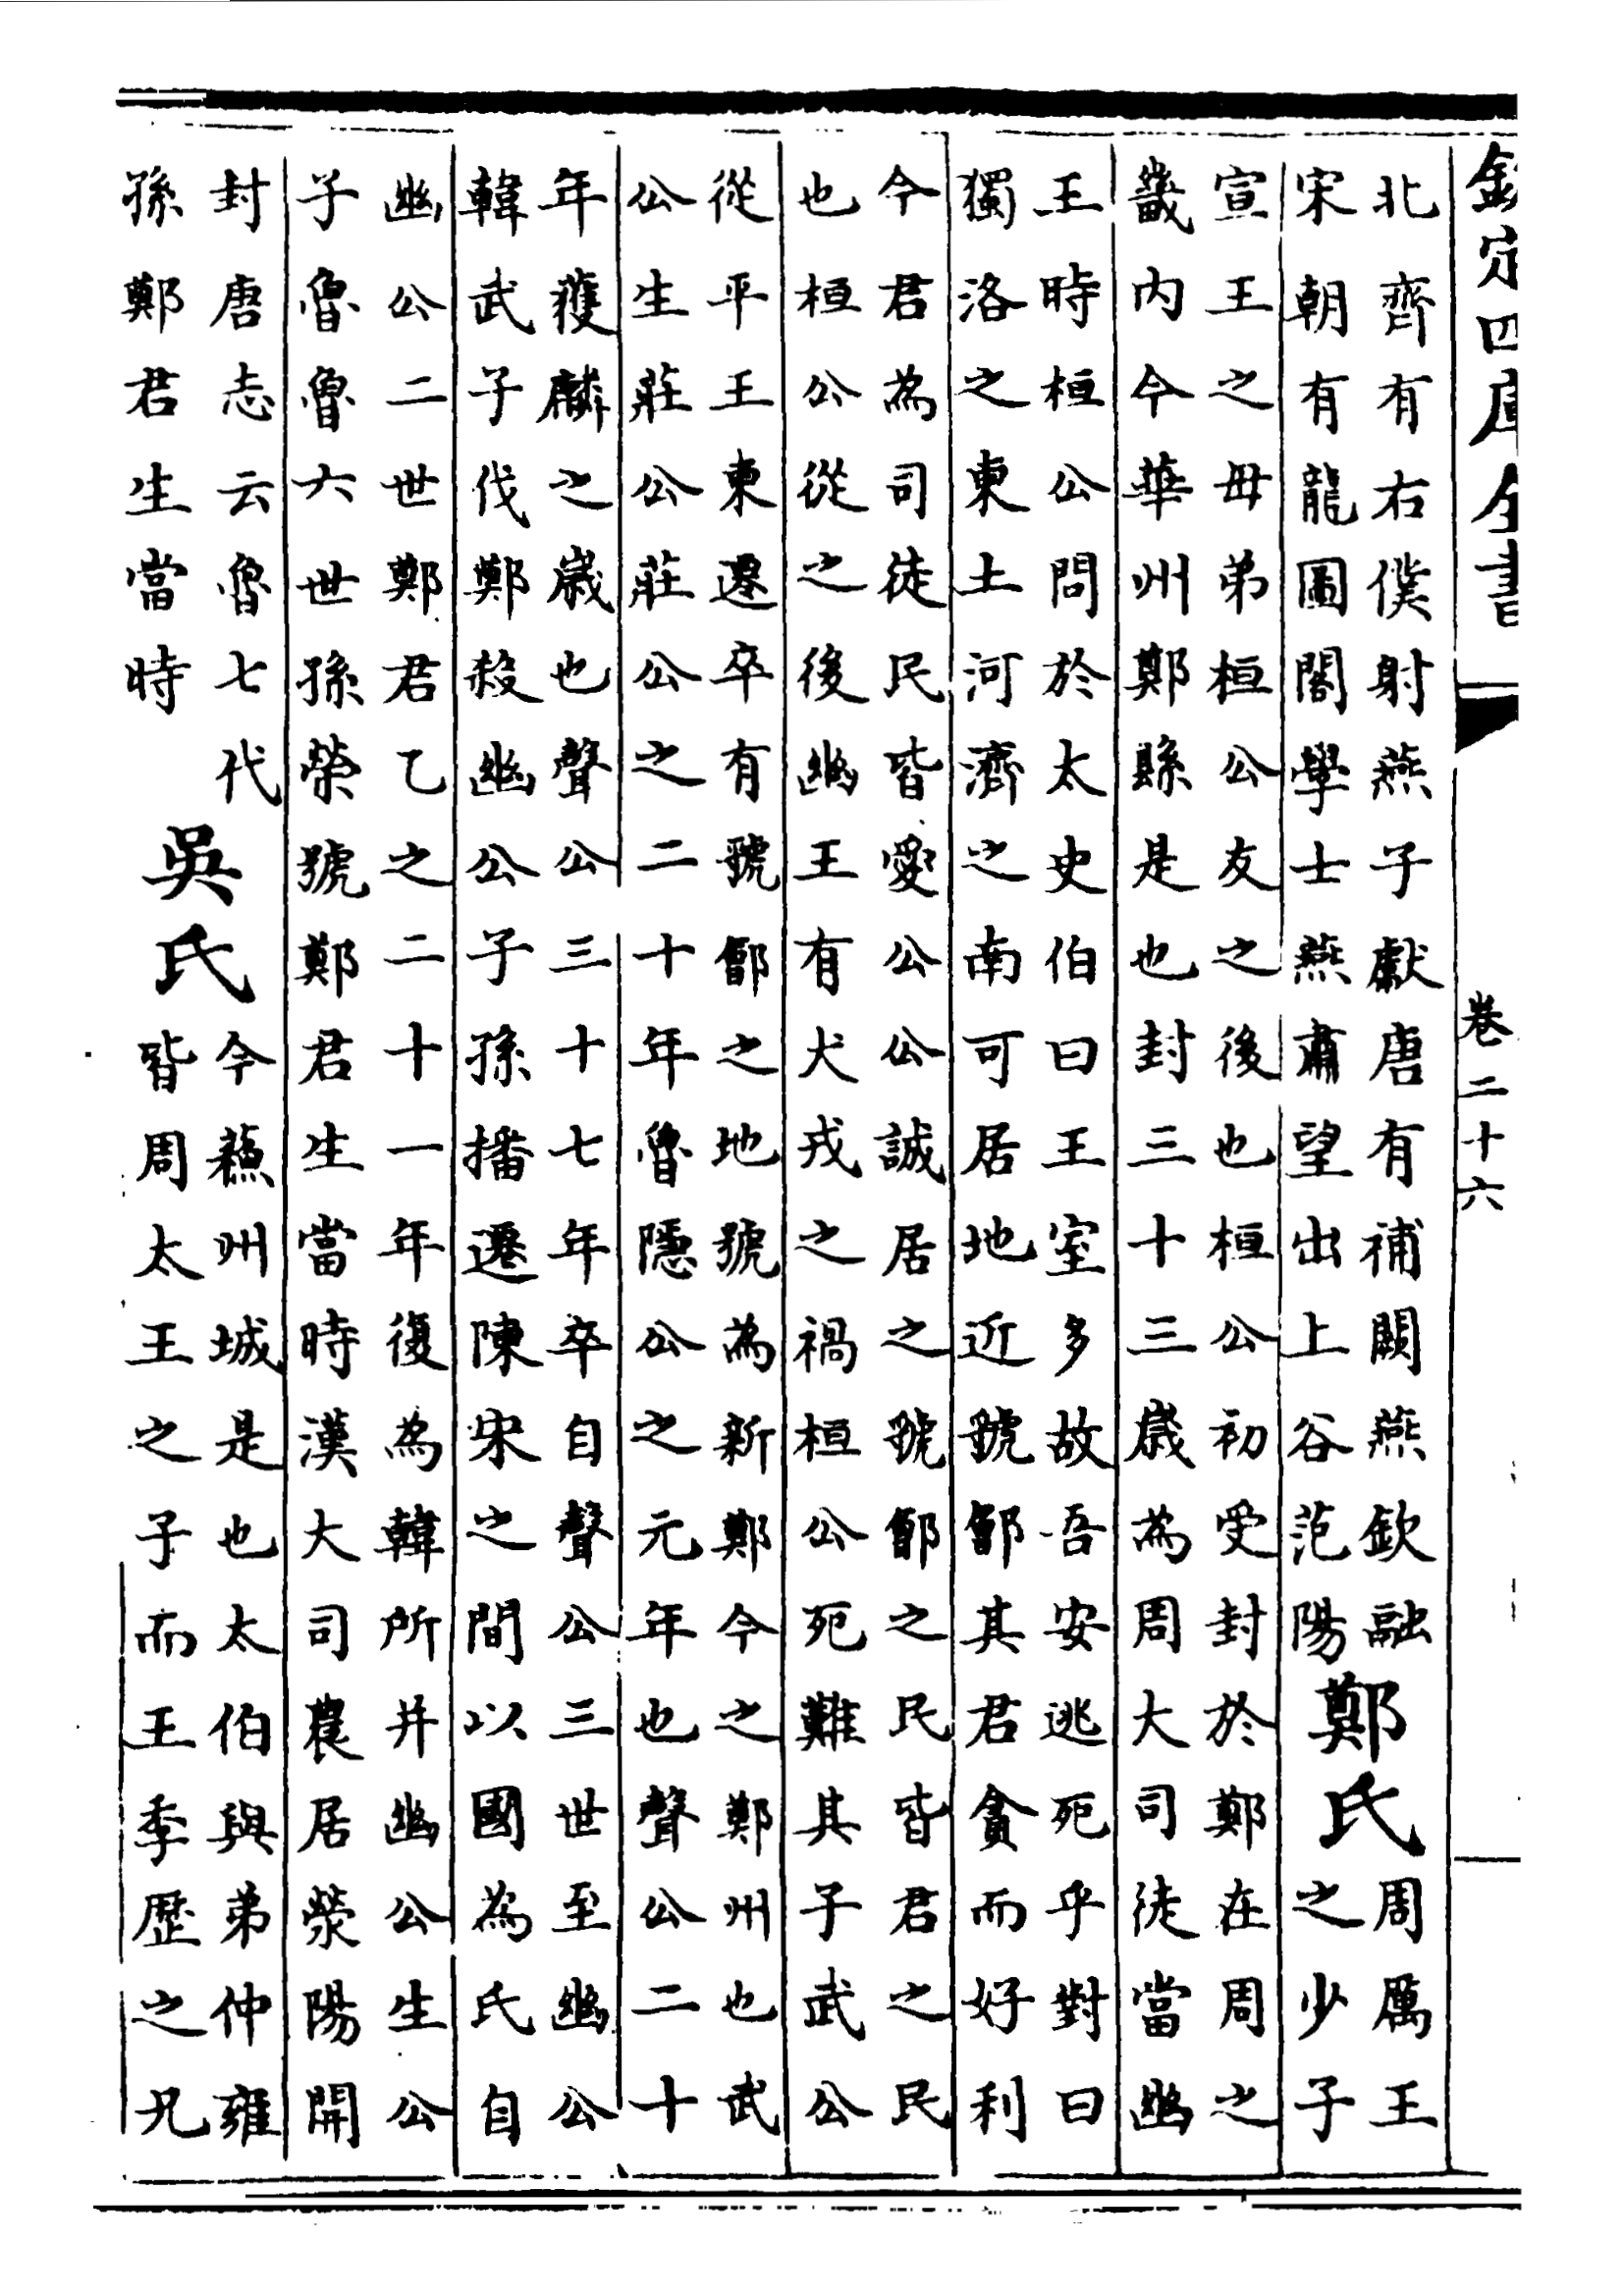 欽定四庫全書 卷二十六
北齊有右僕射燕子獻唐有補闕燕欽融
宋朝有龍圖閣學士燕肅望出上谷范陽
鄭氏
周厲王
之少子
宣王之母弟桓公友之後也桓公初受封於鄭在周之
畿内今華州鄭縣是也封三十三歲為周大司徒當幽
王時桓公問於太史伯曰王室多故吾安逃死乎對曰
獨洛之東土河濟之南可居地近虢鄶其君貪而好利
今君為司徒民皆愛公公誠居之虢鄶之民皆君之民
也桓公從之後幽王有犬戎之禍桓公死難其子武公
從平王東遷卒有虢鄶之地號為新鄭今之鄭州也武
公生莊公莊公之二十年魯隱公之元年也聲公二十
年獲麟之歲也聲公三十七年卒自聲公三世至幽公
韓武子伐鄭殺幽公子孫播遷陳宋之間以國為氏自
幽公二世鄭君乙之二十一年復為韓所并幽公生公
子魯魯六世孫榮號鄭君生當時漢大司農居滎陽開
封唐志云魯七代
孫鄭君生當時
吳氏
今蘇州城是也太伯與弟仲雍
皆周太王之子而王季歷之兄